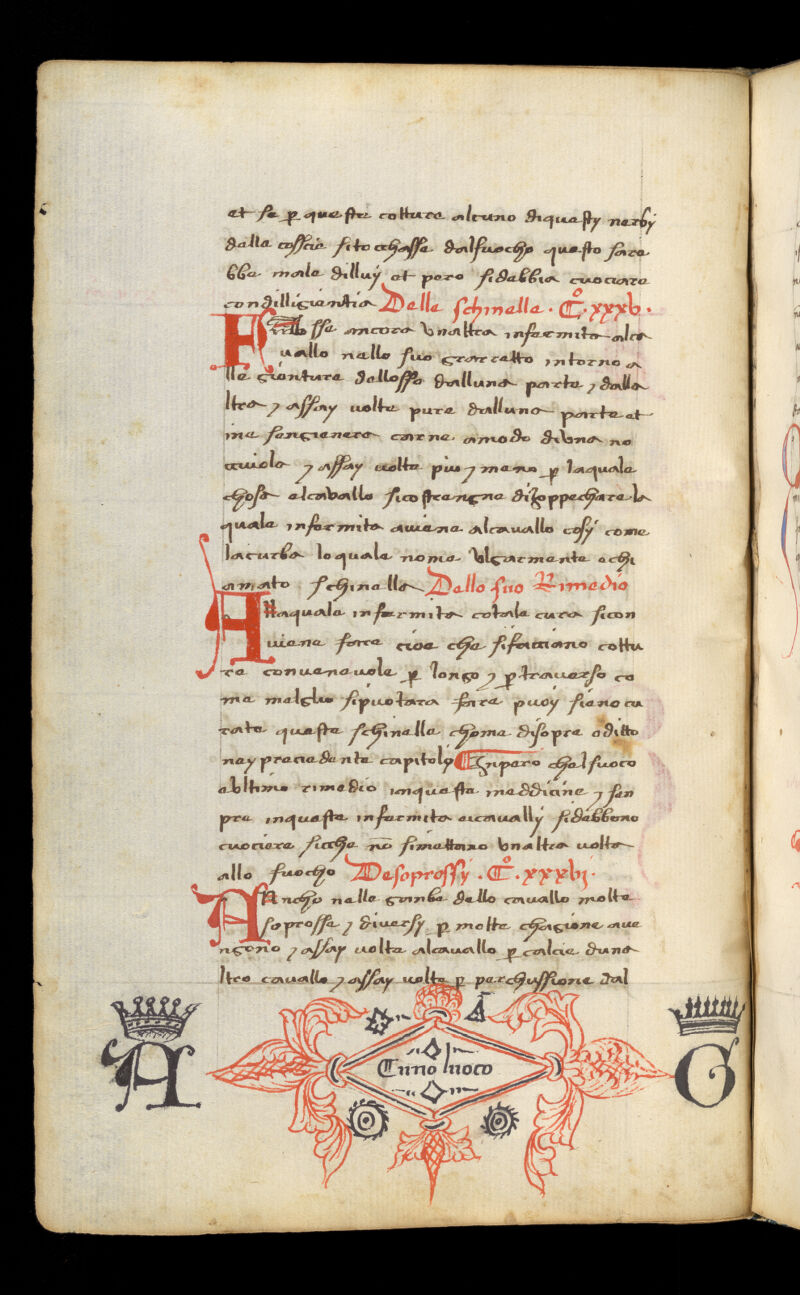 et se p queste cotture alcuno diquesty nerby
dalle coscie sitocchasse dalfuocho questo sare
bbe male dilluy et pero sidebbia cuociare
condilligientia Delle schinelle · C° · xxxv ·
sse ancora unaltra infermita alca
vallo nello suo garretto intorno a
lle gionture dellosso dalluna parte ⁊ dalla
ltra ⁊ assay volte pure dalluna parte et
ine sengienera carne amodo diuna no
cciuola ⁊ assay volte piu ⁊ meno p laquale
chosa elcavallo sicostrengne dizoppechare la
quale infermita aviene alcavallo cosy come
lacurba loquale nome vlgarmente echi
amato schinella Dello suo Rimedio
Allaquale infermita cotale cura sicon
viene fare cioe che sifacciano cottu
re convenevole p longo ⁊ p traverso co
me melglio sipuotara fare puoy sieno cu
rate queste schinelle chome disopra oditto
ney preciedente capitoly Inpero chelfuoco
eultimo rimedio inqueste meddicine ⁊ sen
pre inqueste infermita eicavally sidebbono
cuociere sicche nō simettano unaltra volta
allo fuocho Desoprossy · C° · xxxvj ·
Ancho nelle gambe dello cavallo molte
soprosse ⁊ diversy p molte chagione ave
ngono ⁊ assay volte alcavallo p calcie duna
ltro cavallo ⁊ assay volte p perchussione dal
A G
Cuno luoco